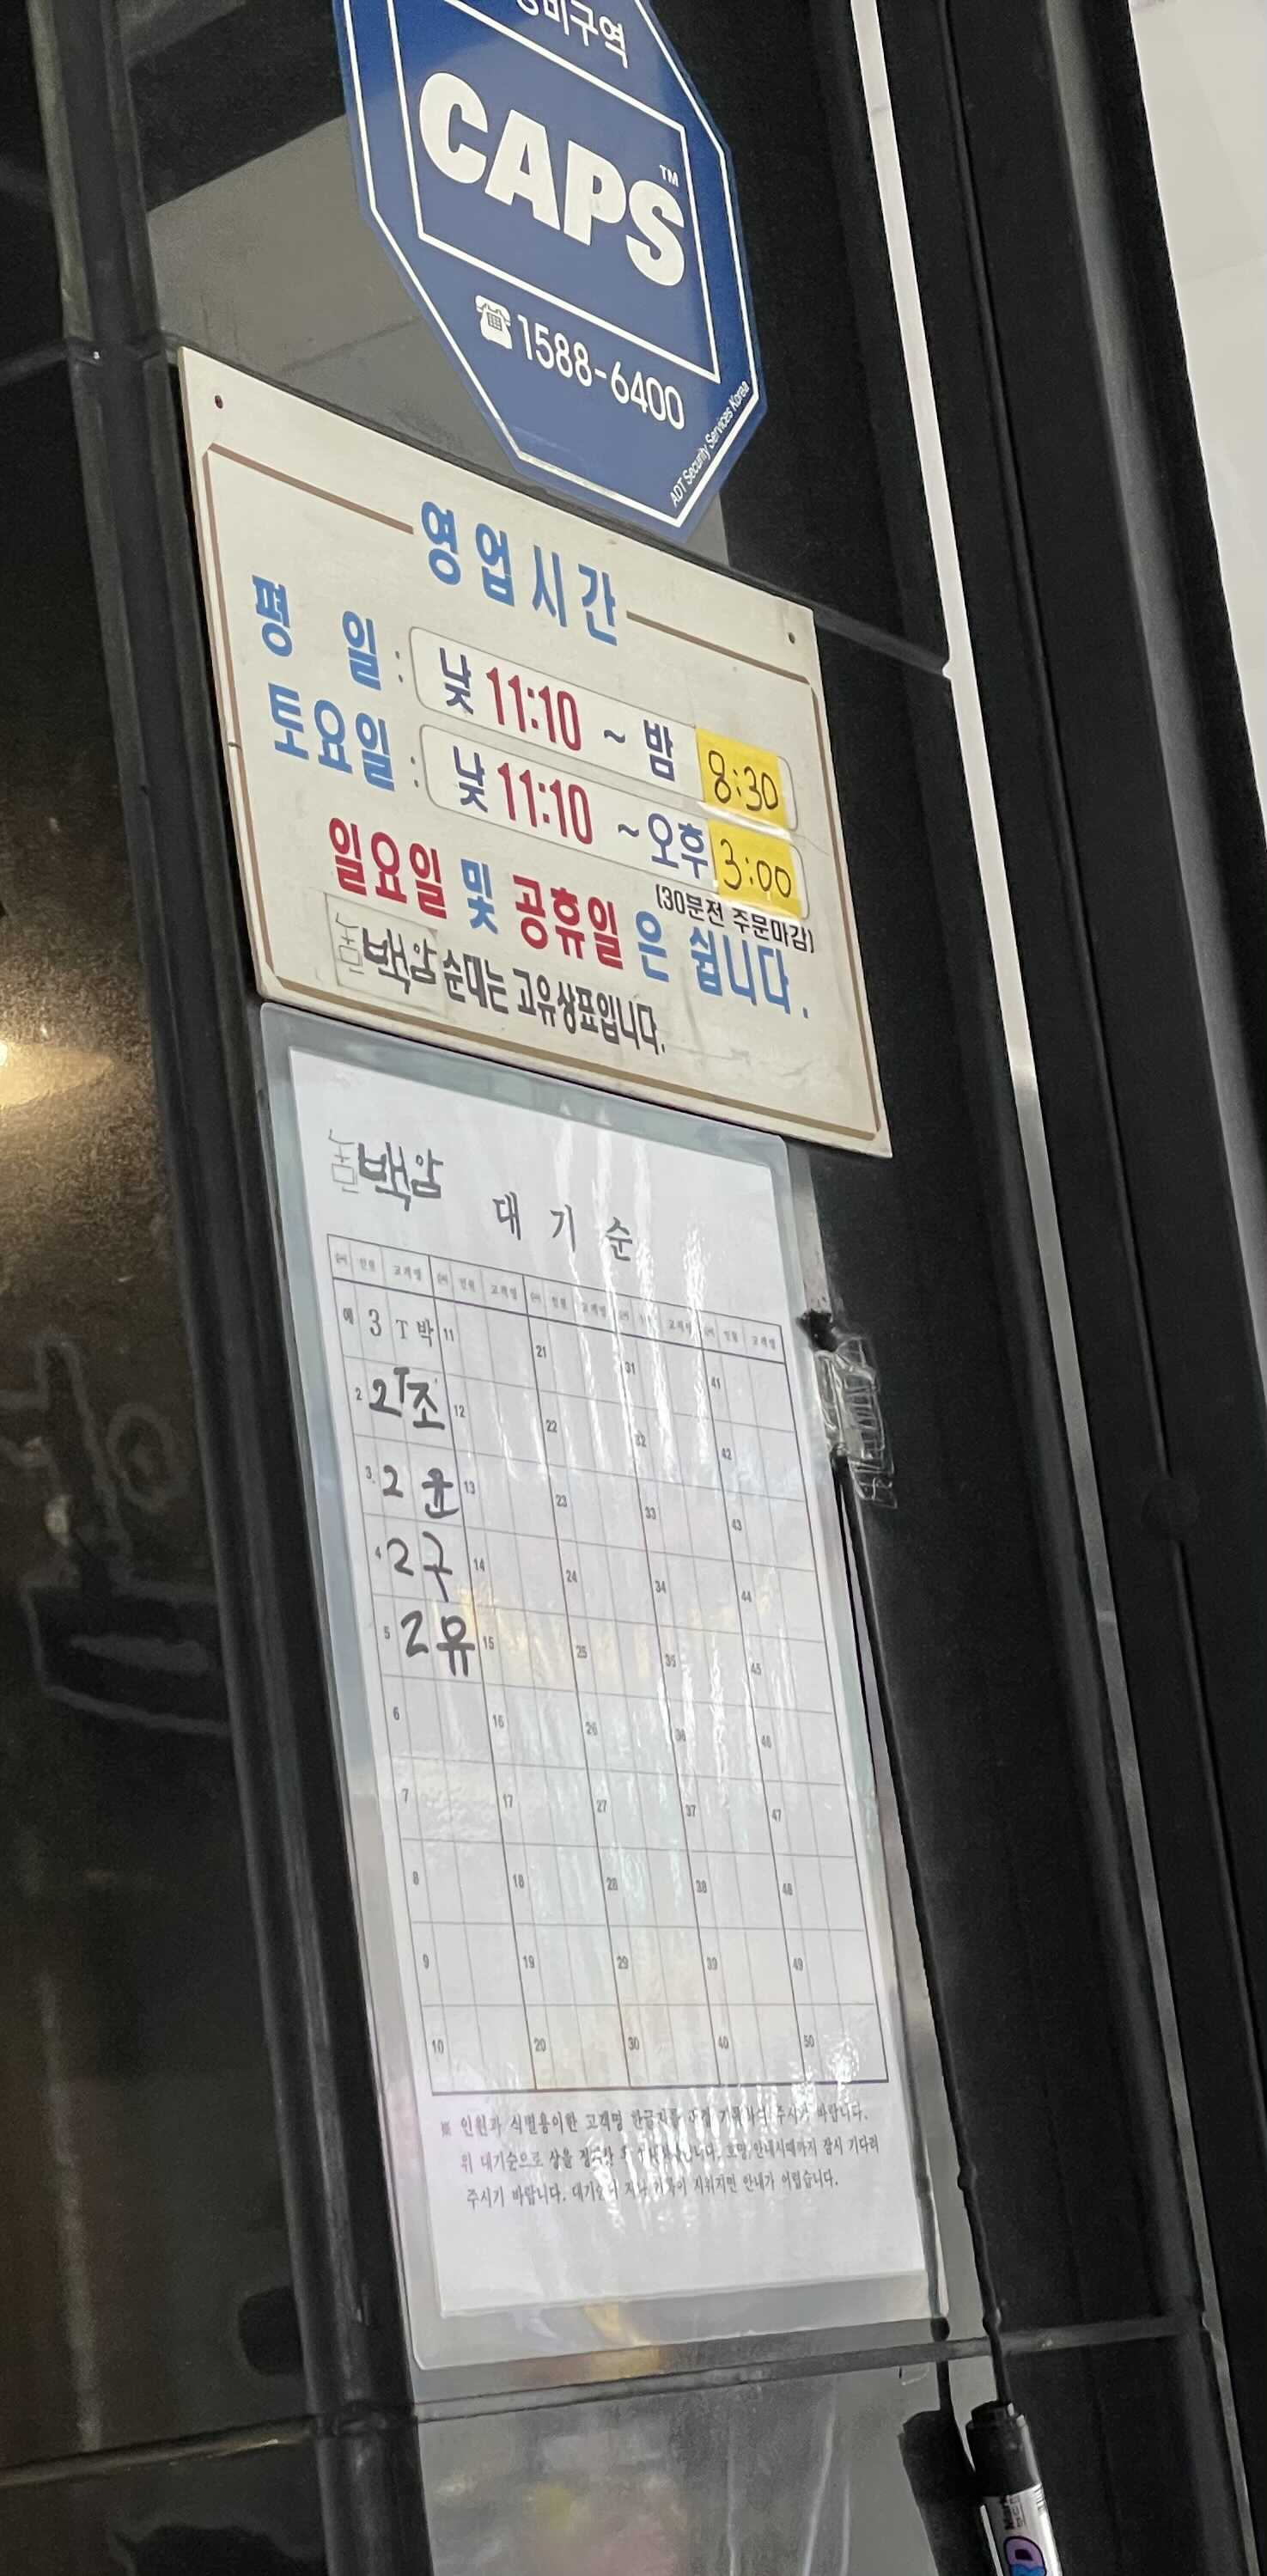 경비구역
CAPS™
☎1588-6400
ADT Security Services Korea
영업시간
평 일 : 낮 11:10 ~ 밤 8:30
토요일 : 낮 11:10 ~오후 3:00
(30분전 주문마감)
일요일 및 공휴일은 쉽니다.
백암순대는 고유상표입니다.
백암
대 기 순
인원 고객명 인원 고객명 인원 고객명 고객명 인원 고객명
예 3 T 박 11 21 31 41
2 2 T조 12 22 32 42
3 2 윤 13 23 33 43
4 2 구 14 24 34 44
5 2 유 15 25 35 45
6 16 26 36 46
7 17 27 37 47
8 18 28 38 48
9 19 29 39 49
10 20 30 40 50
※ 인원과 식별용이한 고객명 한글자를 주시기 바랍니다.
위 대기순으로 상을 호명,안내시때까지 잠시 기다려
주시기 바랍니다. 지워지면 안내가 어렵습니다.